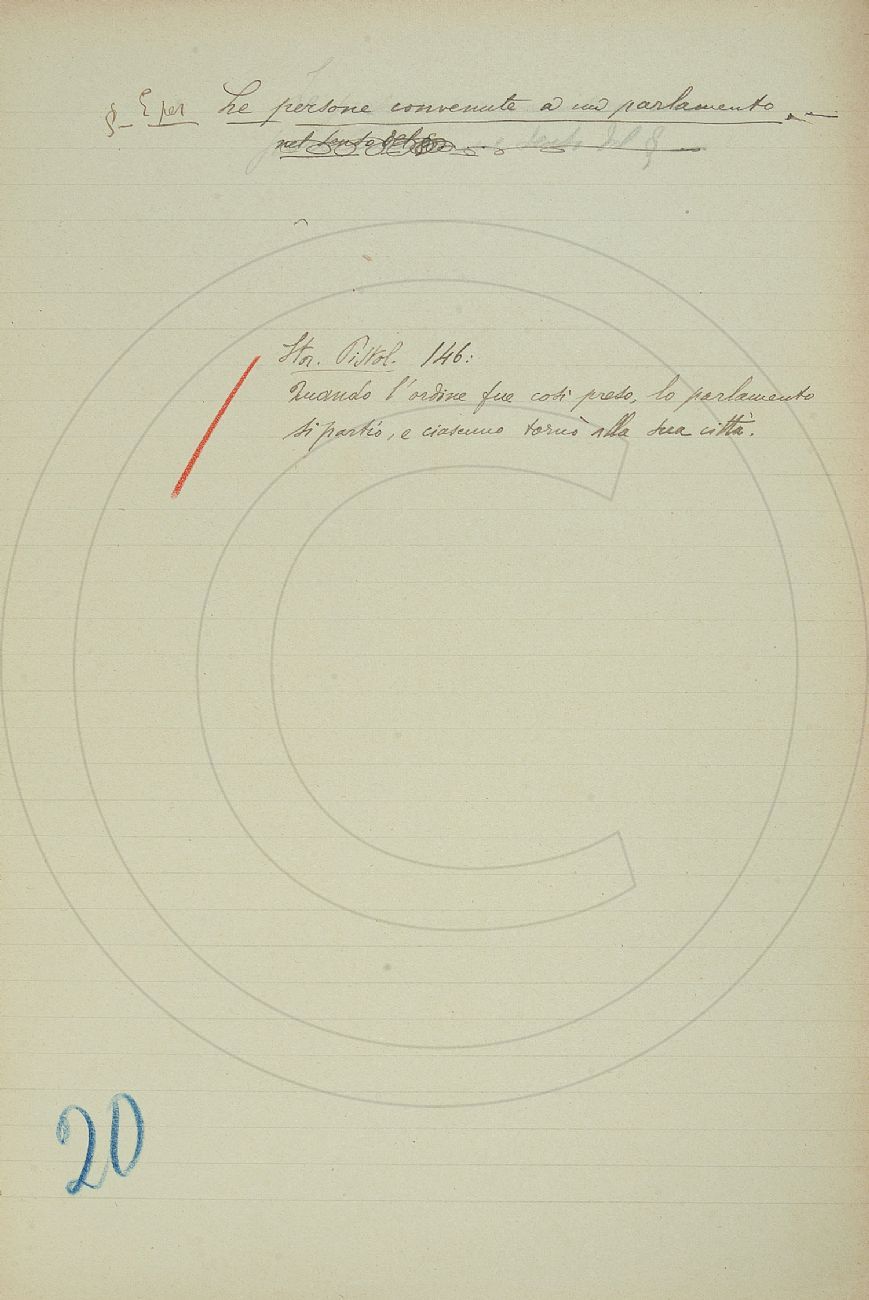 §_ E per Le persone convenute a un parlamento._
nel senso del §
Stor. Pistol. 146:
Quando l'ordine fue così preso, lo parlamento
si partìo, e ciascuno tornò alla sua città.
20